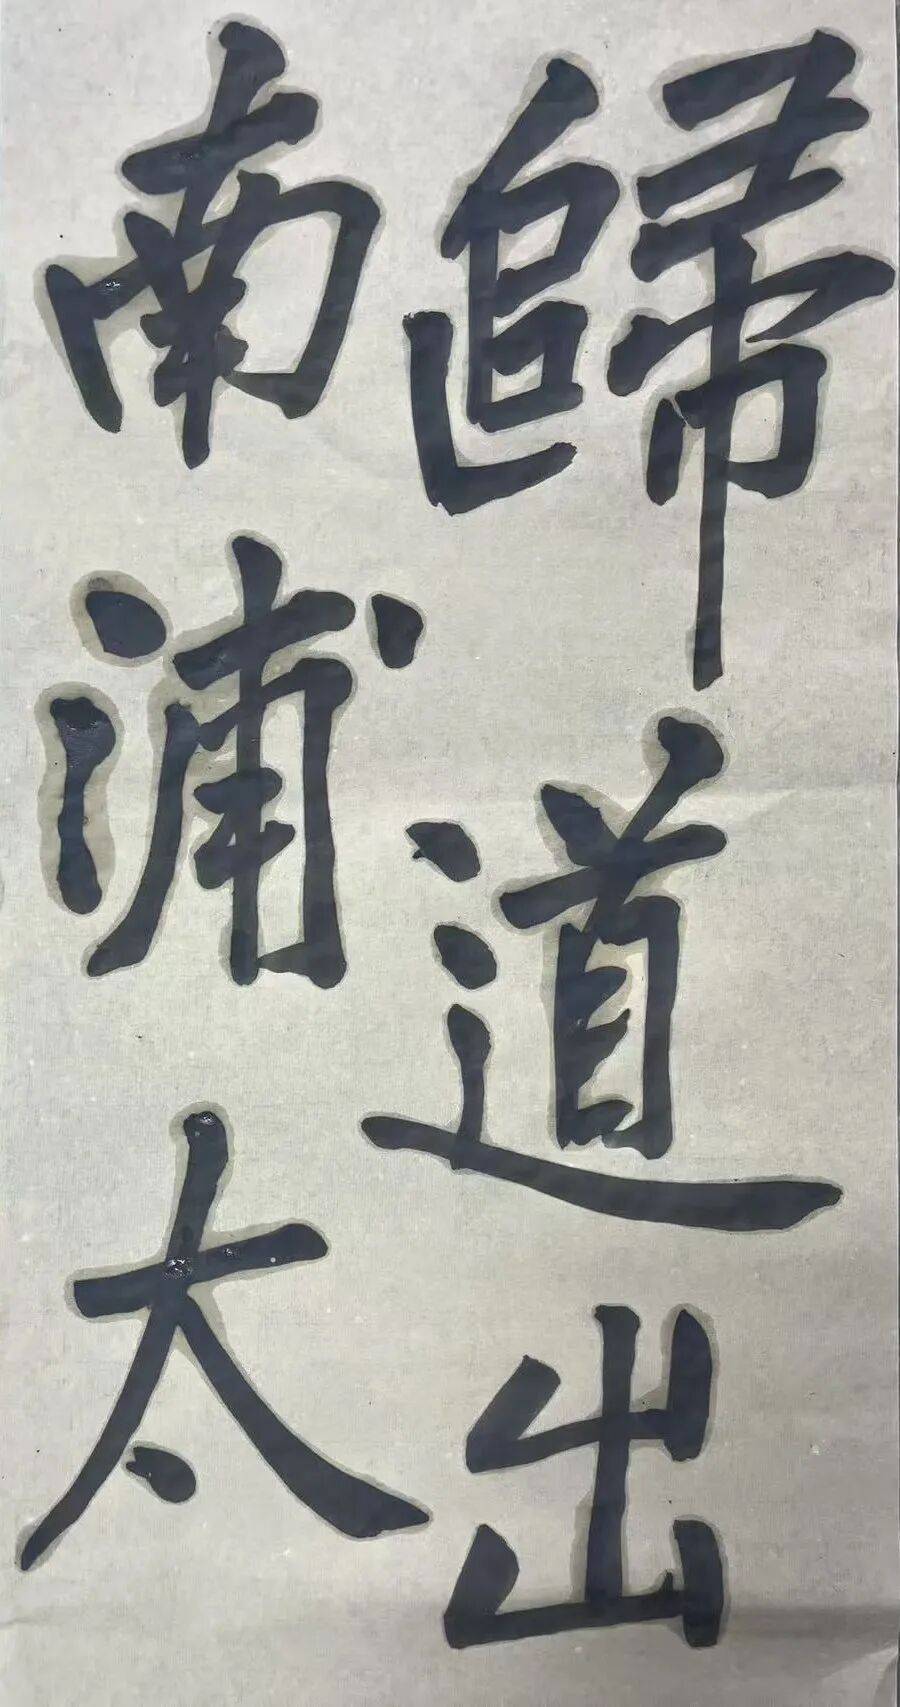 歸道出
南浦太